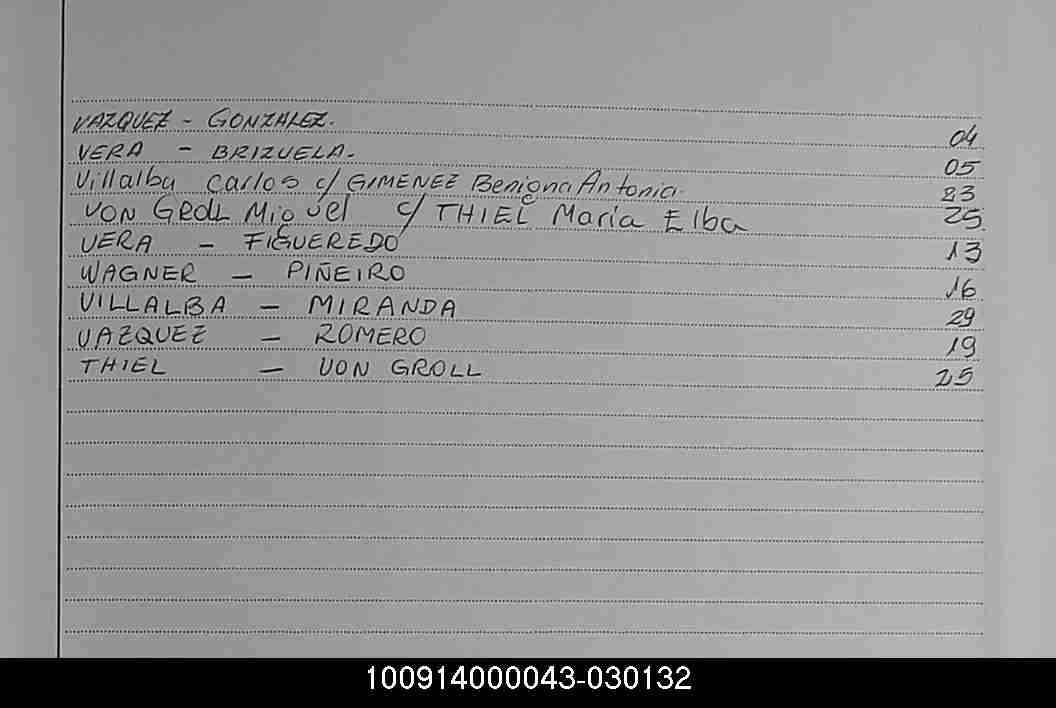 VAZQUEZ - GONZALEZ. 04
VERA - BRIZUELA. 05
Villalba Carlos c/ GIMENEZ Benigna Antonia. 23
VON GROLL Miguel c/ THIEL Maria Elba 25.
VERA - FIGUEREDO 13
WAGNER - PIÑEIRO 16
VILLALBA - MIRANDA 29
VAZQUEZ - ROMERO 19
THIEL - VON GROLL 25
100914000043-030132